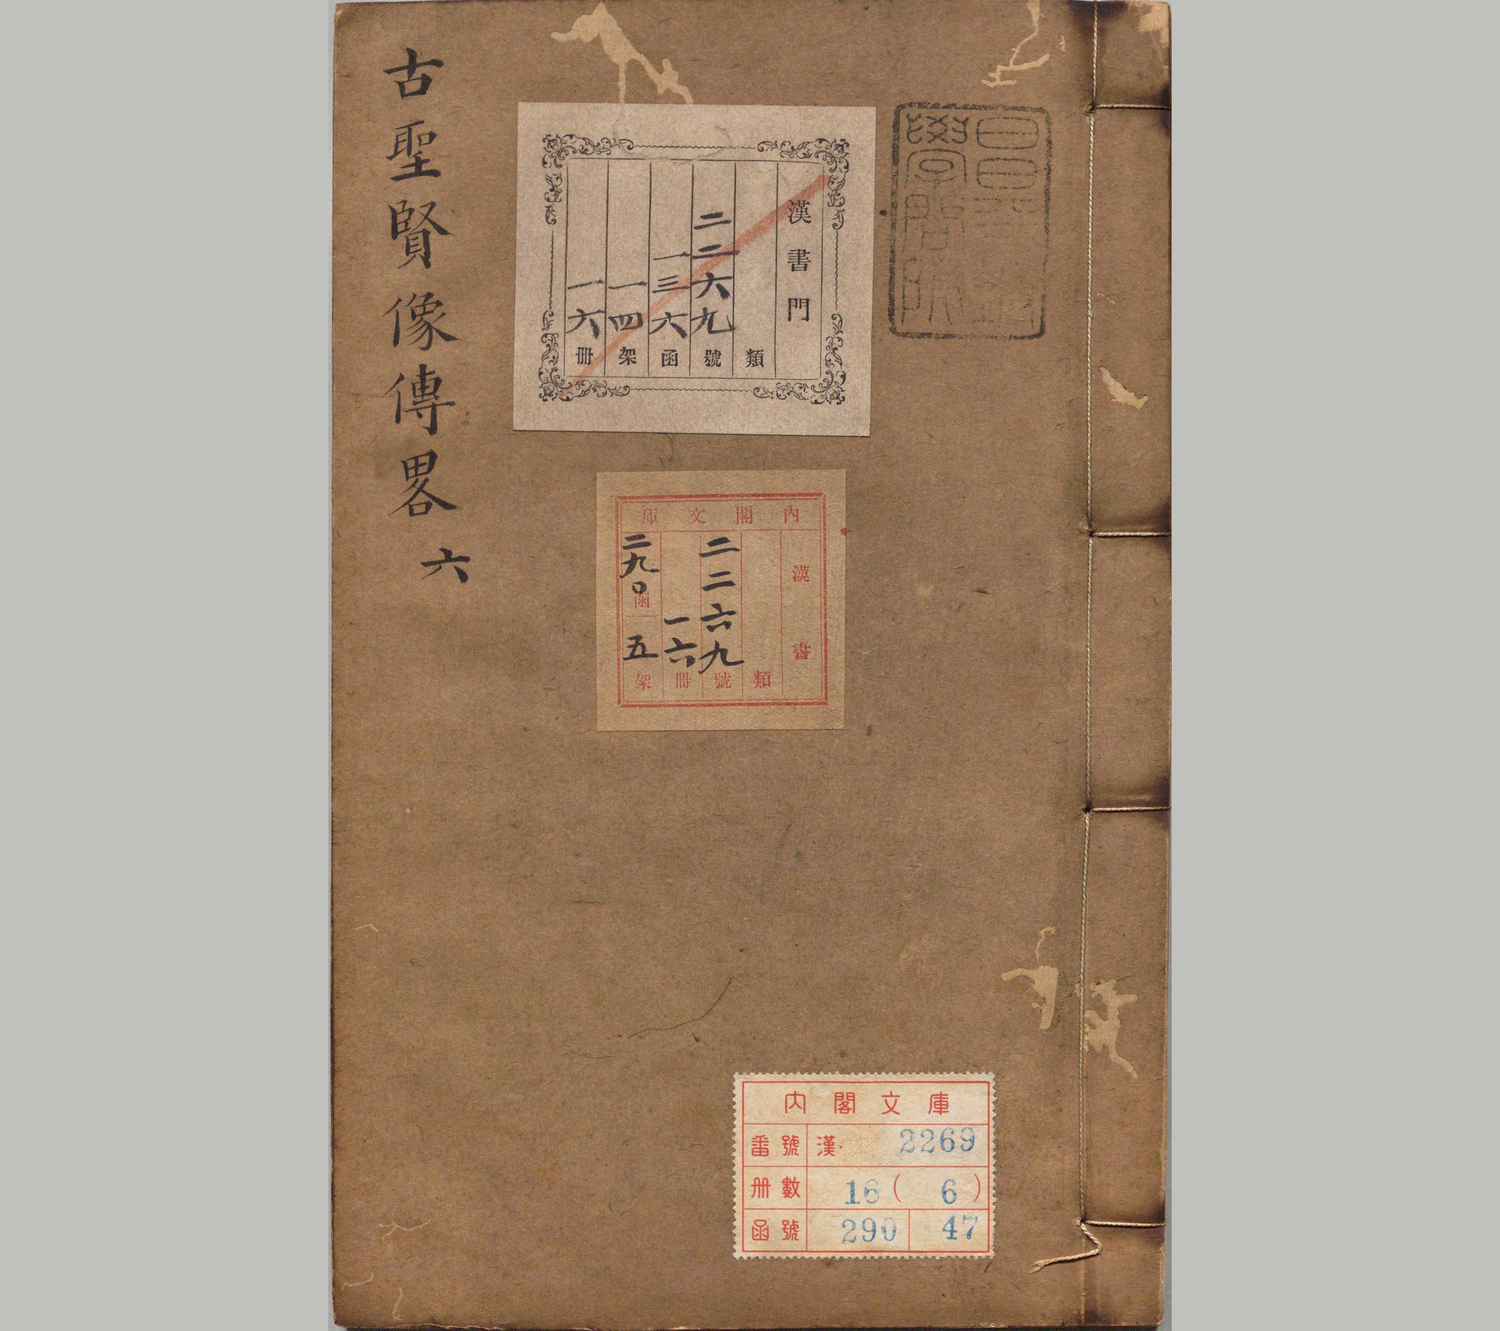 古聖賢像傳畧 六
漢書門
類
二二六九號
一三六函
一四架
一六册
內閣文庫
漢書
類
二二六九號
一六冊
二九〇函 五架
昌平坂
學問所
內閣文庫
番號 漢 2269
册數 16 ( 6 )
函號 290 47